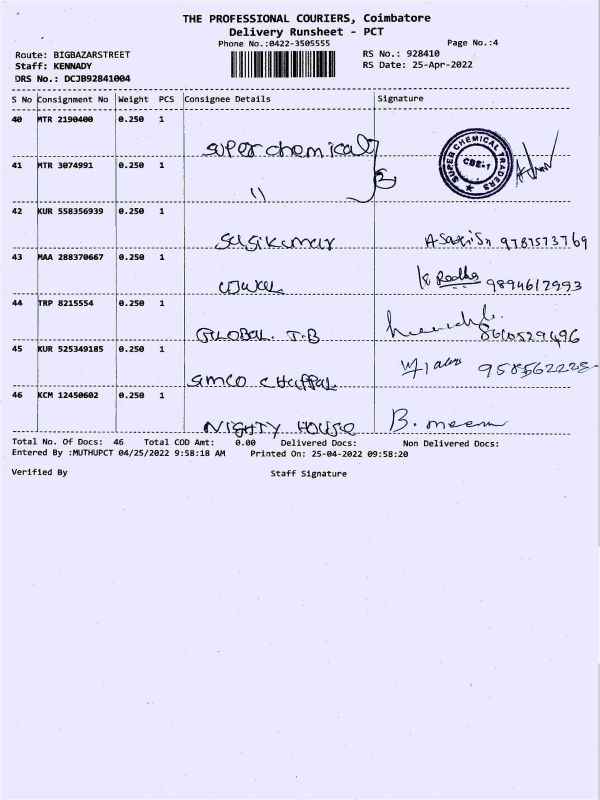 THE PROFESSIONAL COURIERS, Coimbatore
Delivery Runsheet - PCT
Phone No.:0422-3505555
Page No.:4
Route: BIGBAZARSTREET
RS No.: 928410
Staff: KENNADY
RS Date: 25-Apr-2022
DRS No.: DCJB92841004
S No Consignment No Weight PCS Consignee Details Signature
40 MTR 2190400 0.250 1
super chemical
SUPER CHEMICAL TRADERS
CBE-1
41 MTR 3074991 0.250 1
11
42 KUR 558356939 0.250 1
Sasikumar 9787573769
43 MAA 288370667 0.250 1
K Radha 9894617993
44 TRP 8215554 0.250 1
GLOBAL. T.B 8610529496
45 KUR 525349185 0.250 1
Simco chappal 958562228
46 KCM 12450602 0.250 1
NIGHTY HOUSE B. meem
Total No. Of Docs: 46 Total COD Amt: 0.00 Delivered Docs: Non Delivered Docs:
Entered By :MUTHUPCT 04/25/2022 9:58:18 AM Printed On: 25-04-2022 09:58:20
Verified By Staff Signature